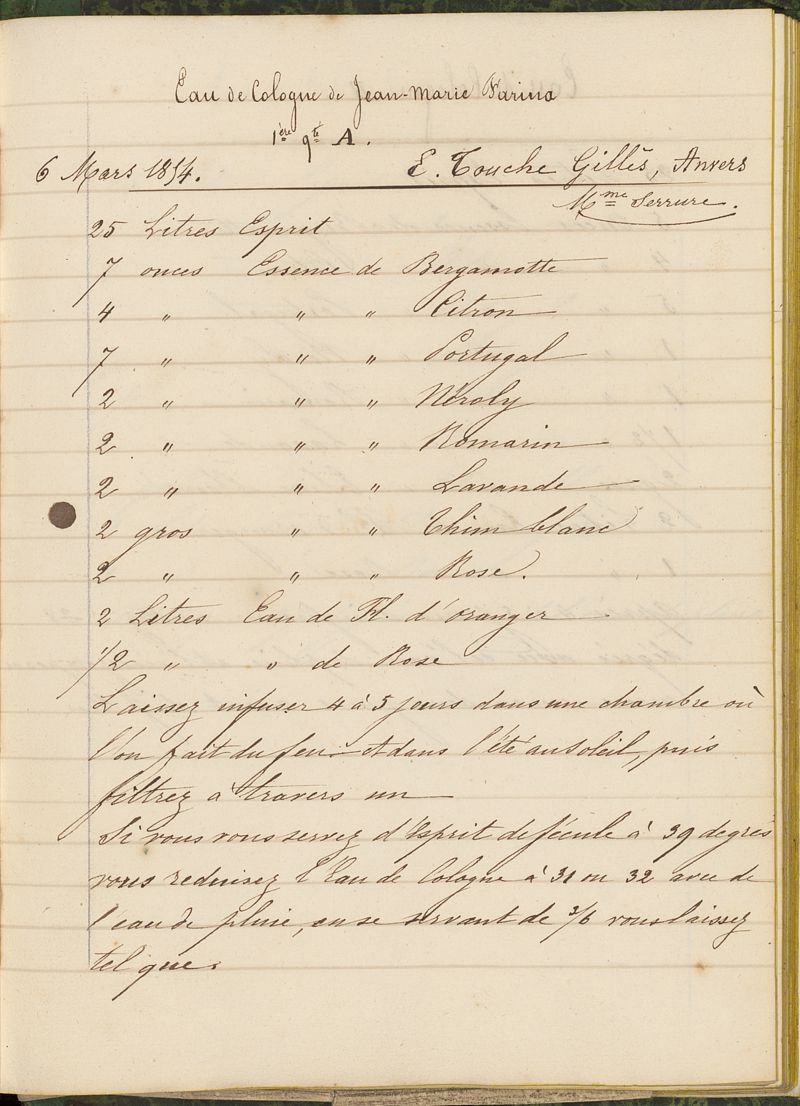 Eau de Cologne de Jean-Marie Farina
1ère qté A.
6 Mars 1854. E. Touche Gillès, Anvers
Mme Serrure.
25 Litres Esprit
7 onces Essence de Bergamotte
4 " " " Citron
7 " " " Portugal
2 " " " Néroly
2 " " " Romarin
2 " " " Lavande
2 gros " " Thim blanc
2 " " " Rose.
2 Litres Eau de Fl. d'oranger
1/2 " " de Rose
Laissez infuser 4 à 5 jours dans une chambre où
l'on fait du feu et dans l'été au Soleil, puis
filtrez à travers un
Si vous vous servez d'Esprit de fécule à 39 degrés
vous reduisez l'Eau de Cologne à 31 ou 32 avec de
l'eau de pluie, en se servant de 3/6 vous laissez
tel que.